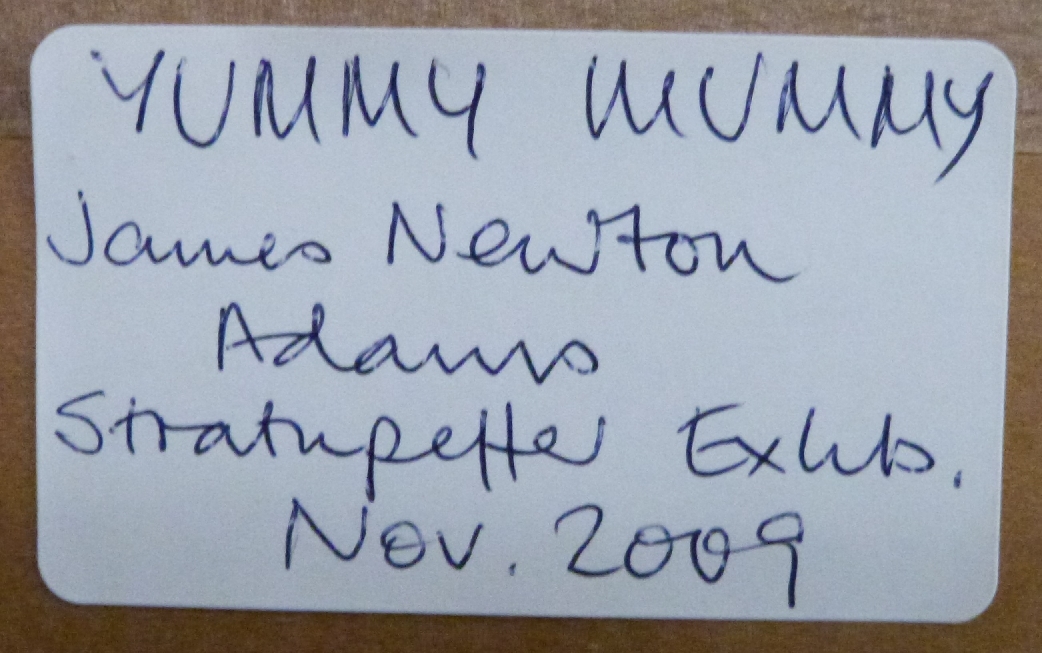 YUMMY MUMMY
James Newton
Adams
Strathpeffer Exhib.
Nov. 2009